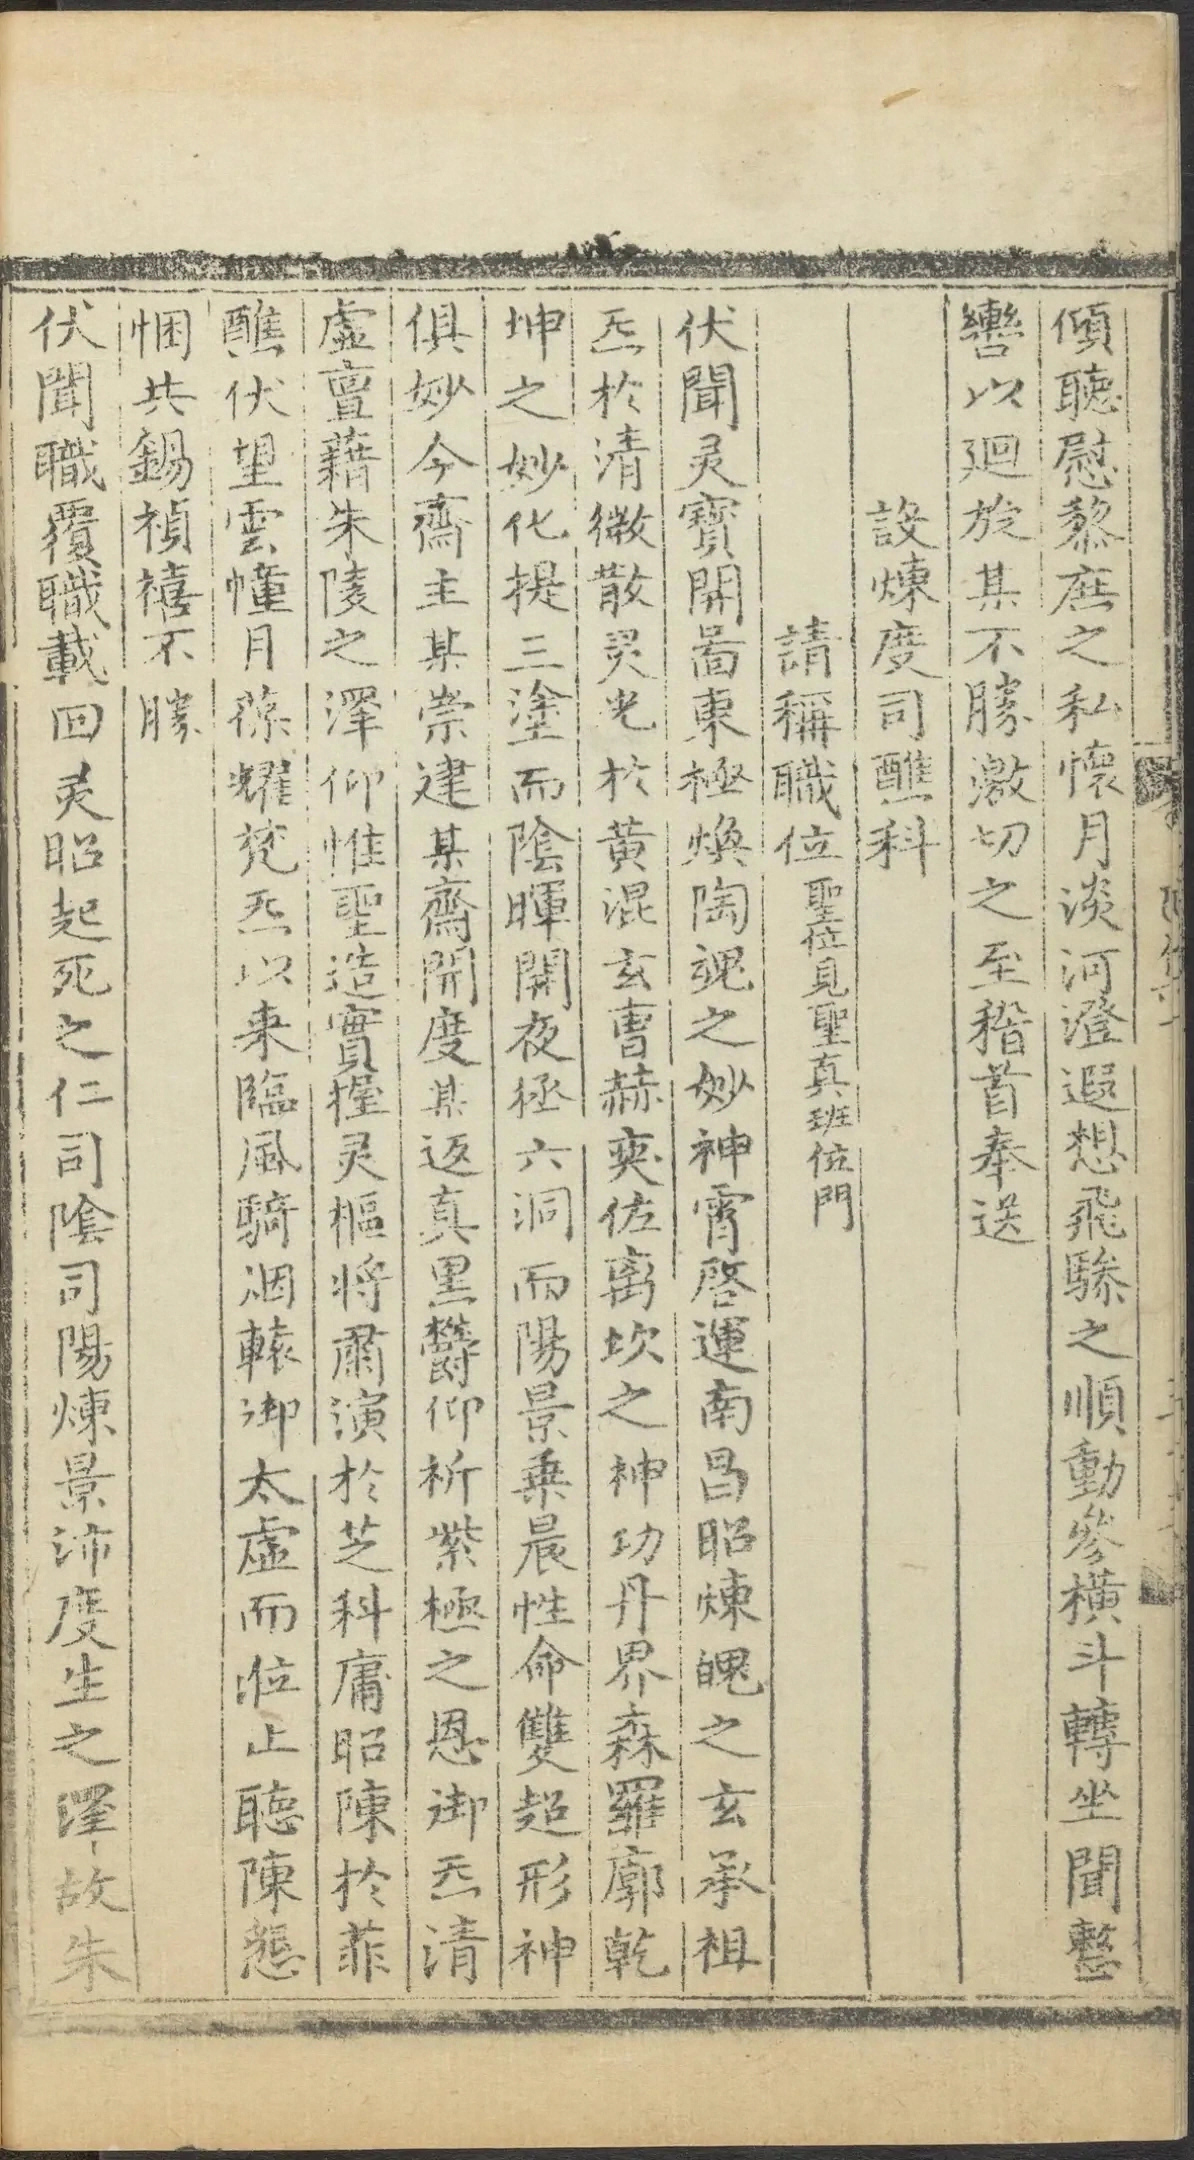 傾聽慰黎庶之私懷月淡河澄遐想飛驂之順動參橫斗轉坐聞整
轡以廻旋某不勝激切之至稽首奉送
設煉度司醮科
請稱職位聖位見聖真班位門
伏聞灵寶開啚東極煥陶魂之妙神霄啓運南昌昭煉魄之玄承祖
炁於清微散灵光於黃混玄曺赫奕佐离坎之神功丹界森羅廓乾
坤之妙化提三塗而陰暉開夜拯六洞而陽景乗晨性命雙超形神
俱妙今齋主某崇建某齋開度某返真黒欝仰祈紫極之恩御炁清
虛亶藉朱陵之澤仰惟聖造實握灵樞將肅演於芝科庸昭陳於菲
醮伏望雲幢月葆耀梵炁以来臨風騎烟轅御太虛而涖止聽陳懇
悃共錫禎禧不勝
伏聞職覆職載回灵昭起死之仁司陰司陽煉景沛度生之澤故朱